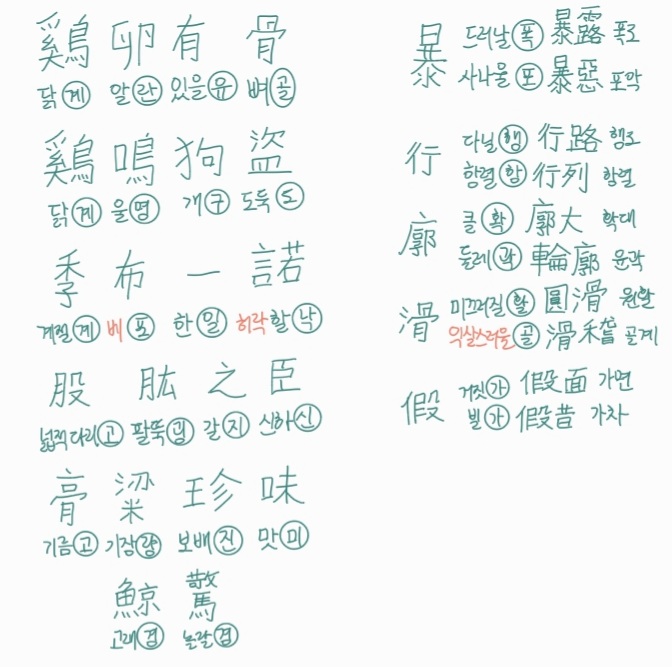 鷄 卵 有 骨
닭 계 알 란 있을 유 뼈 골
鷄 鳴 狗 盜
닭 계 울 명 개 구 도둑 도
季 布 一 諾
계절 계 베 포 한 일 허락할 낙
股 肱 之 臣
넓적다리 고 팔뚝 굉 갈 지 신하 신
膏 粱 珍 味
기름 고 기장 량 보배 진 맛 미
鯨 驚
고래 경 놀랄 경
暴 드러날 폭 暴露 폭로
사나울 포 暴惡 포악
行 다닐 행 行路 행로
항렬 항 行列 항렬
廓 클 확 廓大 확대
둘레 곽 輪廓 윤곽
滑 미끄러질 활 圓滑 원활
익살스러울 골 滑稽 골계
假 거짓 가 假面 가면
빌 가 假昔 가차